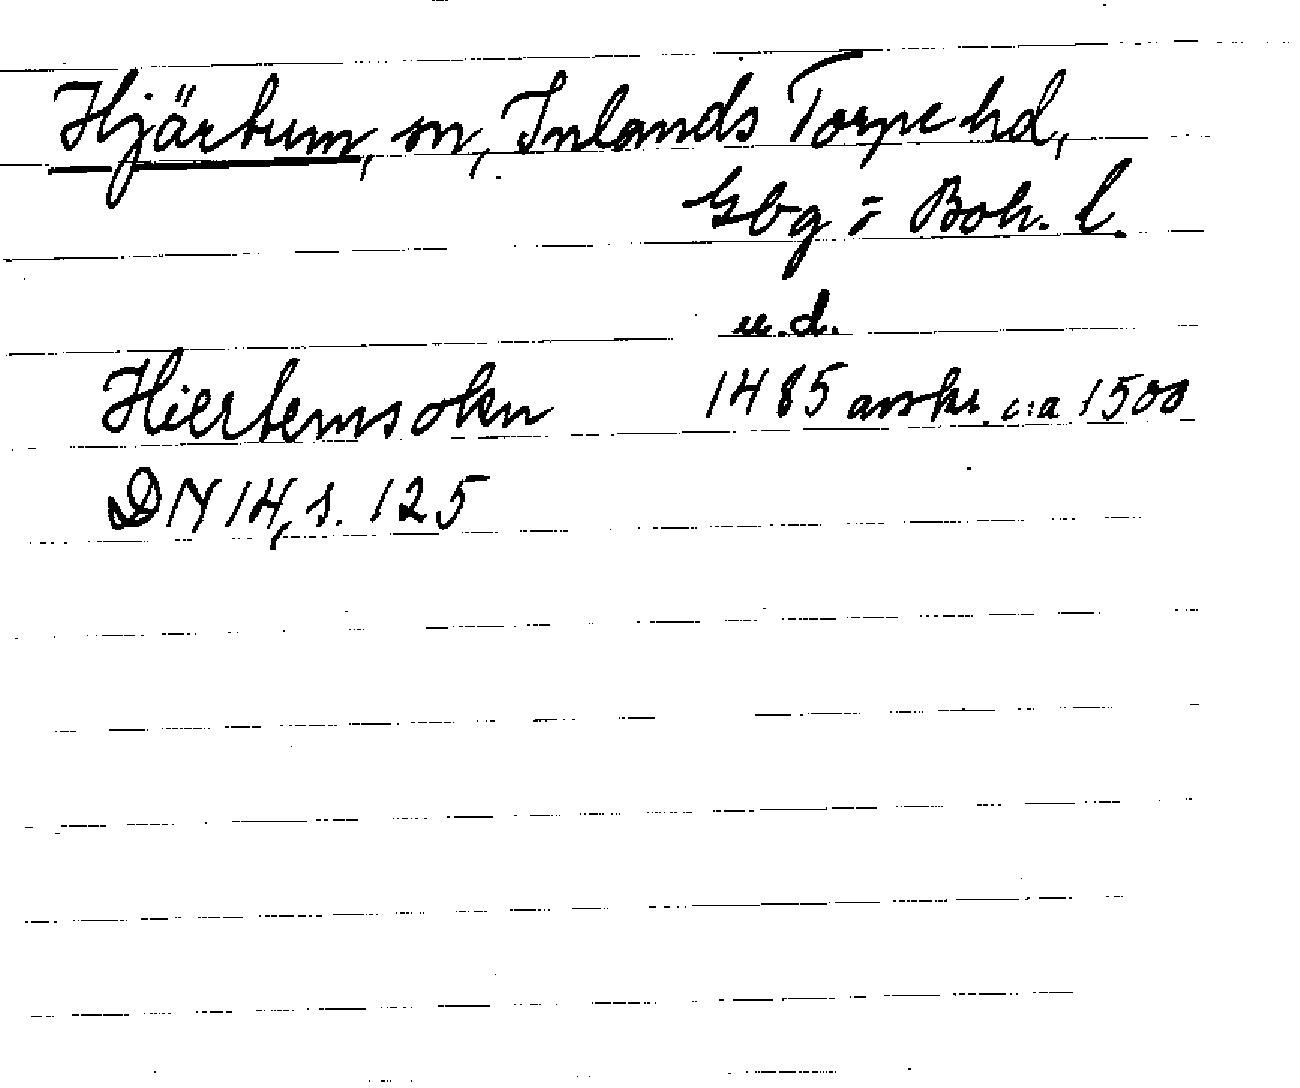 Hjärtum, sn, Inlands Torpe hd,
Gbg o Boh. l.
u.d.
Hiertemsokn 1485 avskr. c:a 1500
DN 14, s. 125